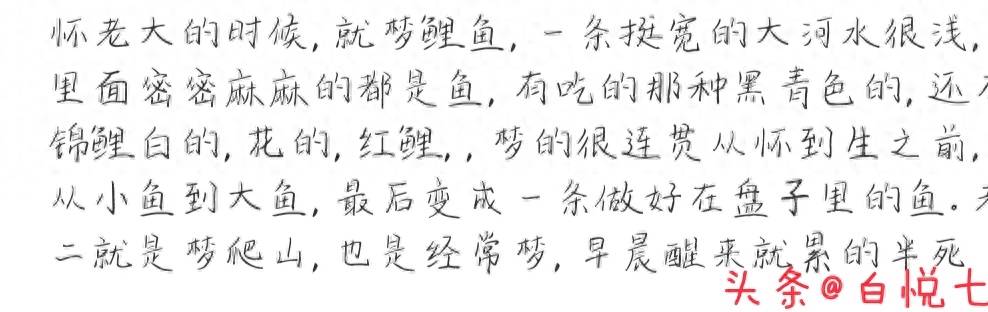 怀老大的时候,就梦鲤鱼,一条挺宽的大河水很浅,
里面密密麻麻的都是鱼,有吃的那种黑青色的,还
锦鲤白的,花的,红鲤,,梦的很连贯从怀到生之前,
从小鱼到大鱼,最后变成一条做好在盘子里的鱼。
二就是梦爬山,也是经常梦,早晨醒来就累的半死
头条@白悦七